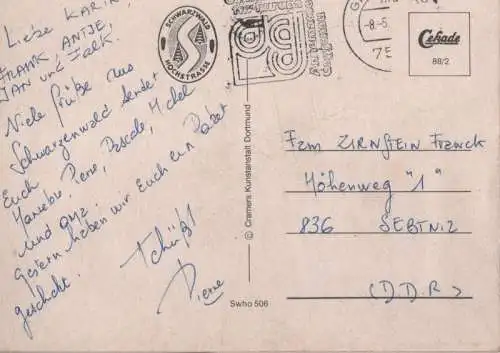 Liebe KARIN,
FRANK ANTJE,
JAN und Falk.
Viele Grüße aus
Schwarzenwald sendet
Euch Pierre, Pascale, Michel
und
Gestern haben wir Euch ein Paket
geschickt.
Tschüß!
Pierre
SCHWARZWALD
HOCHSTRASSE
-8.-5.
75
Cekade
88/2
© Cramers Kunstanstalt Dortmund
Swho 506
Fam ZIRNSTEIN Franck
Höhenweg "1"
836 SEBTNIZ
(D.D.R)